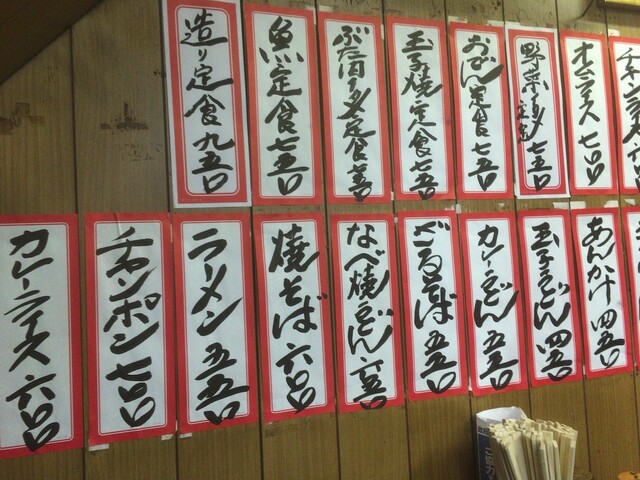 造り定食 九五〇
魚定食 七五〇
ぶた肉イタメ定食 七五〇
玉子焼定食 七五〇
おでん定食 七五〇
野菜イタメ定食 七五〇
オムライス 七〇〇
カレーライス 六〇〇
チャンポン 七〇〇
ラーメン 五五〇
焼そば 六〇〇
なべ焼うどん 六五〇
ざるそば 五五〇
カレーうどん 五五〇
玉子うどん 四五〇
あんかけ 四五〇
ご協力